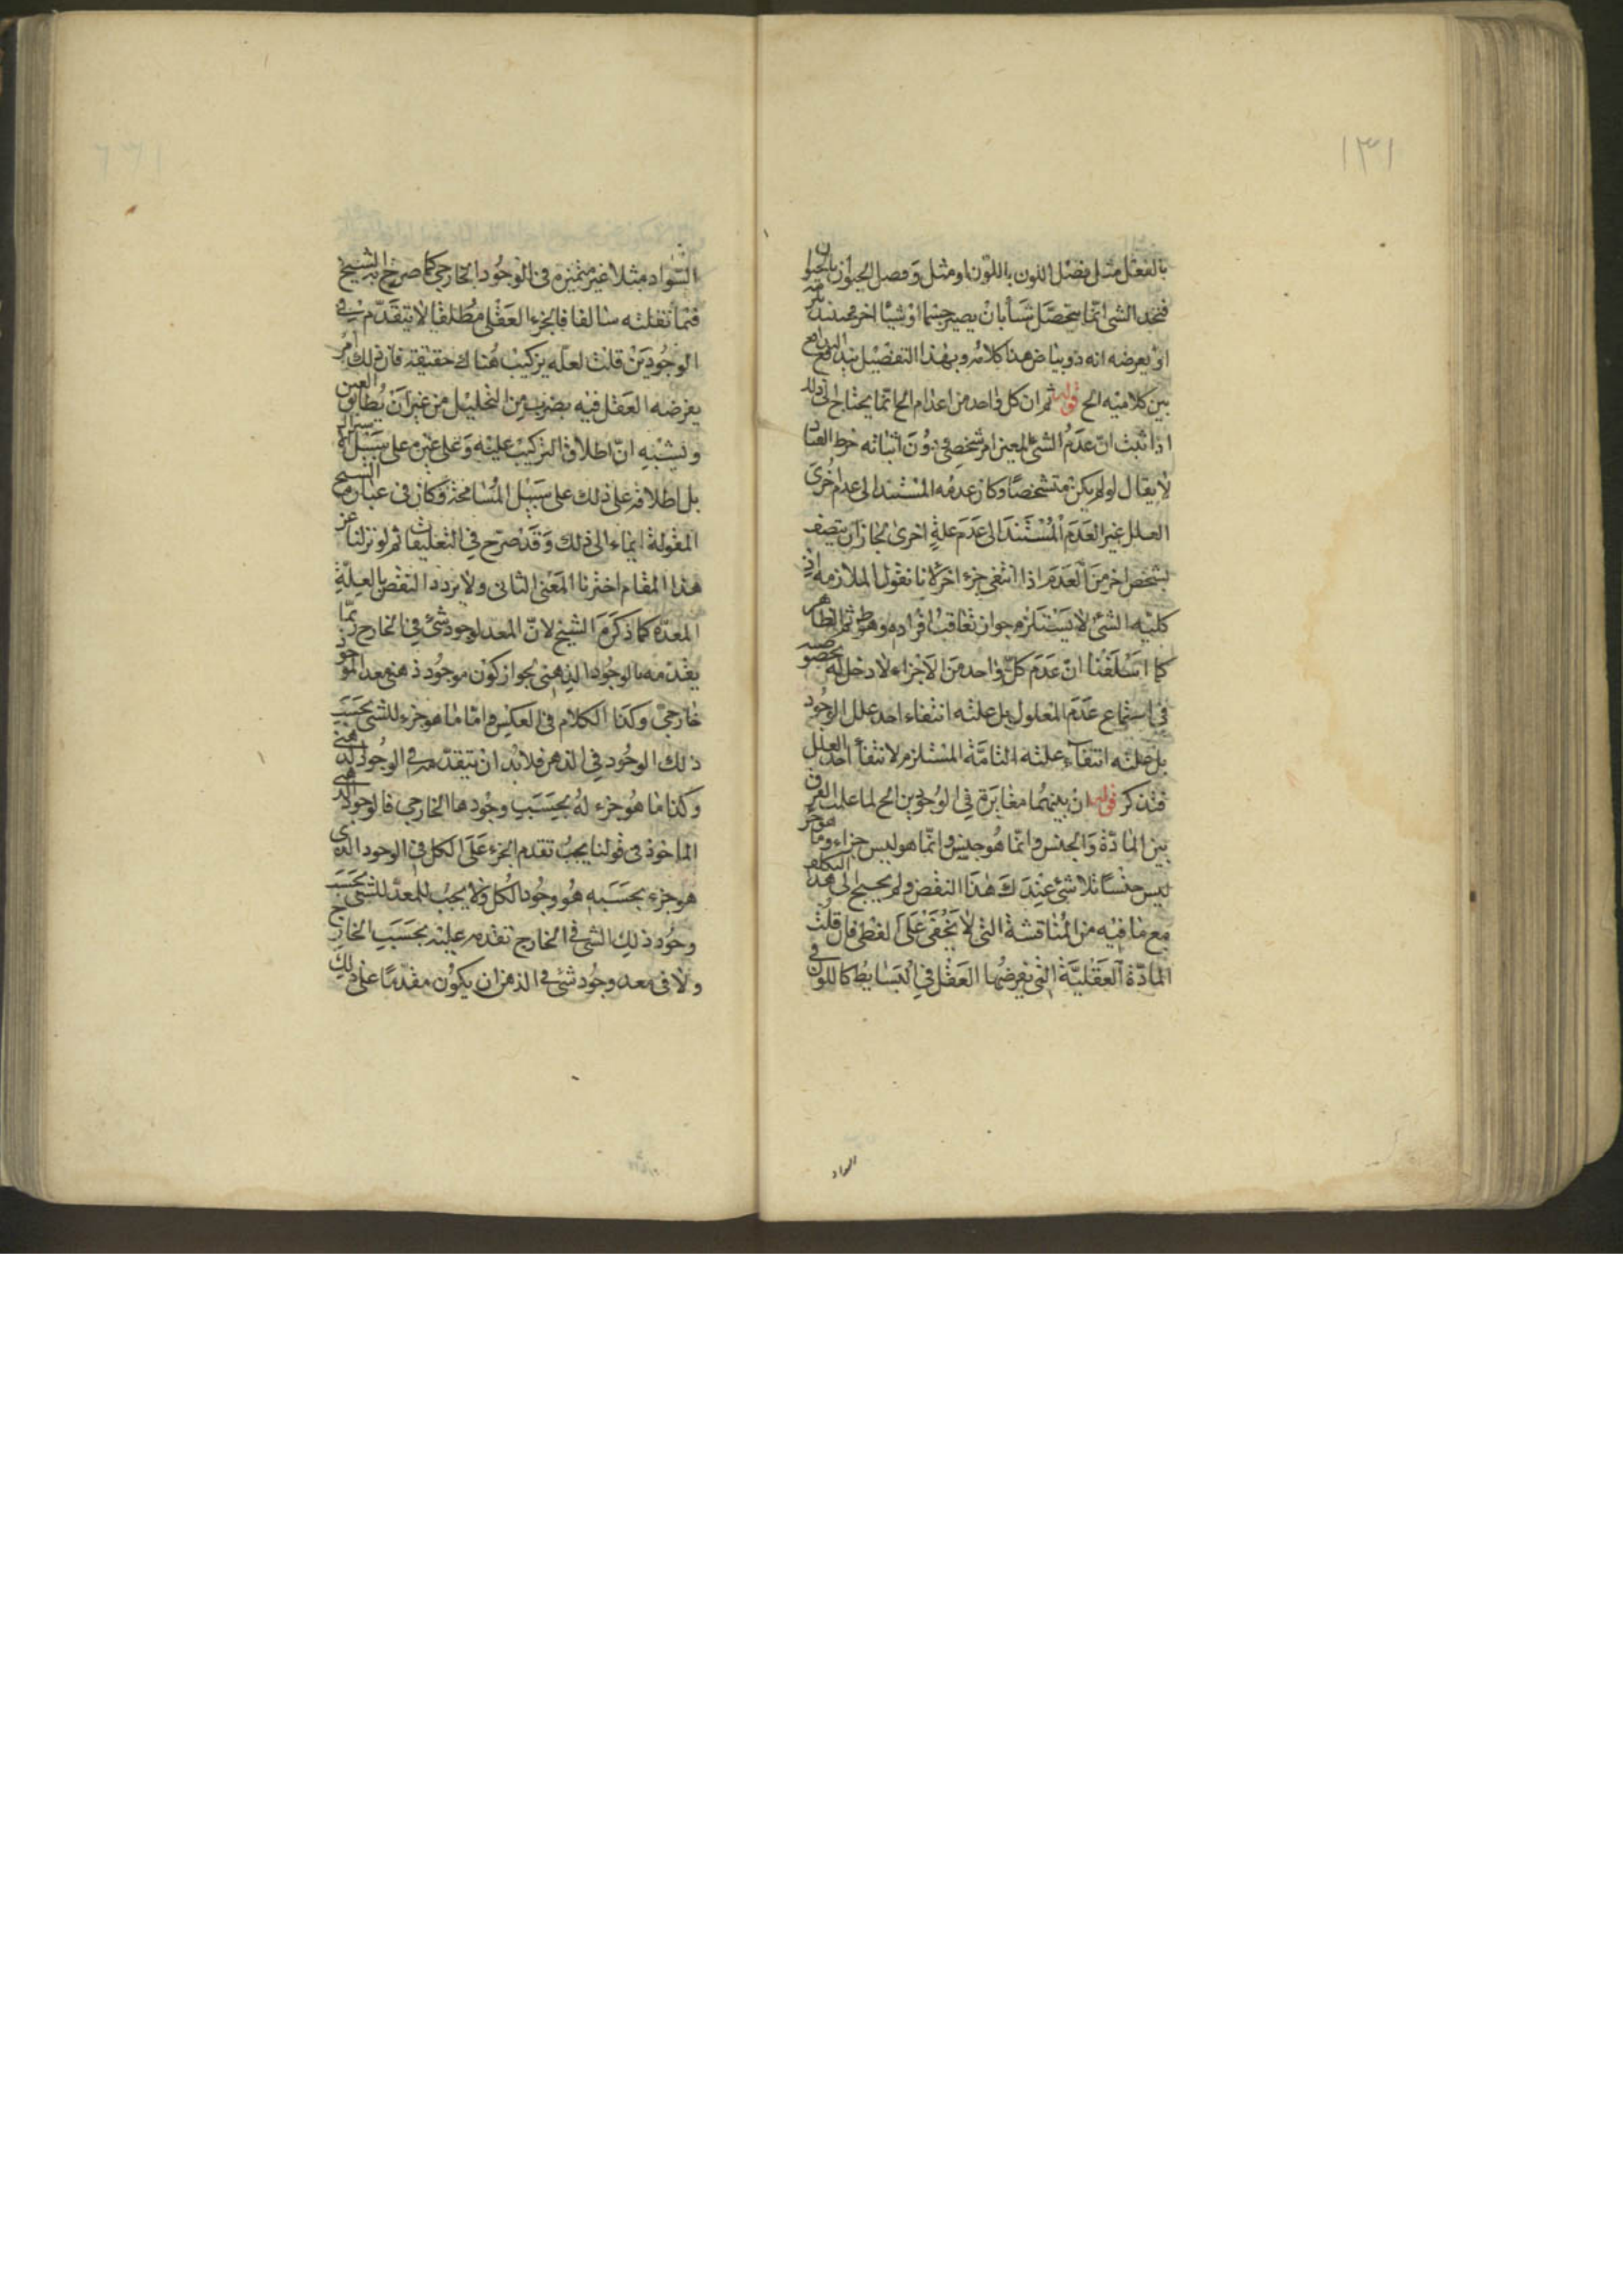 ١٣١
بالفعل مثل فصل اللون باللون او مثل وفصل الحيوان بالحيوان
فتجد الشئ انما يتحصل شيأ بان يصير جسما او شيئا اخر
او يعرضه انه ذو بياض هذا كلامه وبهذا التفصيل يندفع التدافع
بين كلاميه الخ قوله ثم ان كل واحد من اعدام الخ انما يحتاج الى ذلك
اذا ثبت انّ عدم الشئ المعين امر شخصى ودون اثباته خرط القتاد
لا يقال لو لم يكن متشخصًا وكان عدمه المستند الى عدم اخرى
العلل غير العدم المستند الى عدم علةٍ اخرى لجاز ان يتصف
بشخص اخر من العدم اذا انتفى جزء اخر لانا نقول الملازمة اذ
كلية الشئ لا يستلزم جواز تعاقب افراده وهو ظ ثم الظاهر
كما اسلفنا انّ عدم كلّ واحد من الاجزاء لا دخل له بخصوصه
فى استتباع عدم المعلول بل علته انتفاء احد علل الوجود
بل علته انتفاء علته التامّة المستلزم لانتفاء احد العلل
فتذكر قوله ان بينهما مغايرة فى الوجودين الخ لما علمت الفرق
بين المادّة والجنس وانما هو جنس وانما هو ليس جزاء وما هو جزء
ليس جنسًا تلاشى عندك هذا النقض ولم يحتج الى هذا التكلف
مع ما فيه من المناقشة التى لا تخفى على لفطن فان قلت
المادّة العقليّة التى يفرضها العقل فى البسايط كاللون فى
السواد
السّواد مثلا غير متميزة فى الوجود الخارجى كما صرح به الشيخ
فيما نقلته سالفا فالجزء العقلى مطلقا لا يتقدّم فى
الوجودين قلت لعلّه يركيب هناك حقيقة فان ذلك امر
يفرضه العقل فيه بضرب من التحليل من غير ان يطابق العين
ويشبه انّ اطلاق التركيب عليه وعلى غيره على سبيل
بل اطلاقه على ذلك على سبيل المسامحة وكان فى عبارة الشيخ
المنقولة ايماء الى ذلك وقد صرّح فى التعليقات ثم لو نزلنا عن
هذا المقام اخترنا المعنى الثانى ولا يرد النقض بالعلّة
المعدّة كما ذكره الشيخ لانّ المعد لوجود شئ فى الخارج ربّما
يقدمه بالوجود الذهنى لجواز كون موجود ذهنى معد الموجود
خارجىّ وكذا الكلام فى العكس واما ما هو جزء للشئ بحسب
ذلك الوجود فى الذهن فلابدّ ان يتقدّمه فى الوجود الذهنى
وكذا ما هو جزء له بحسب وجودها الخارجى فالوجود
الماخوذ فى قولنا يجب تقدم الجزء على الكل فى الوجود الذى
هو جزء بحسبه هو وجود الكل ولا يجب للمعدّ للشئ بحسب
وجود ذلك الشئ فى الخارج تقدمه عليه بحسب الخارج
ولا فى معد وجود شئ فى الذهن ان يكون مقدّما على ذلك